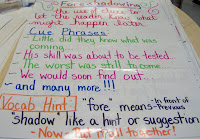 Foreshadowing
the use of clues to
let the reader know what
might happen later
Cue Phrases:
Little did they know what was
coming...
His skill was about to be tested.
The worst was still to come...
We would soon find out...
and many more!!!
Vocab Hint! "fore" means - in front of
- Previous
"shadow" like a hint or suggestion
- Now... Put it all together!